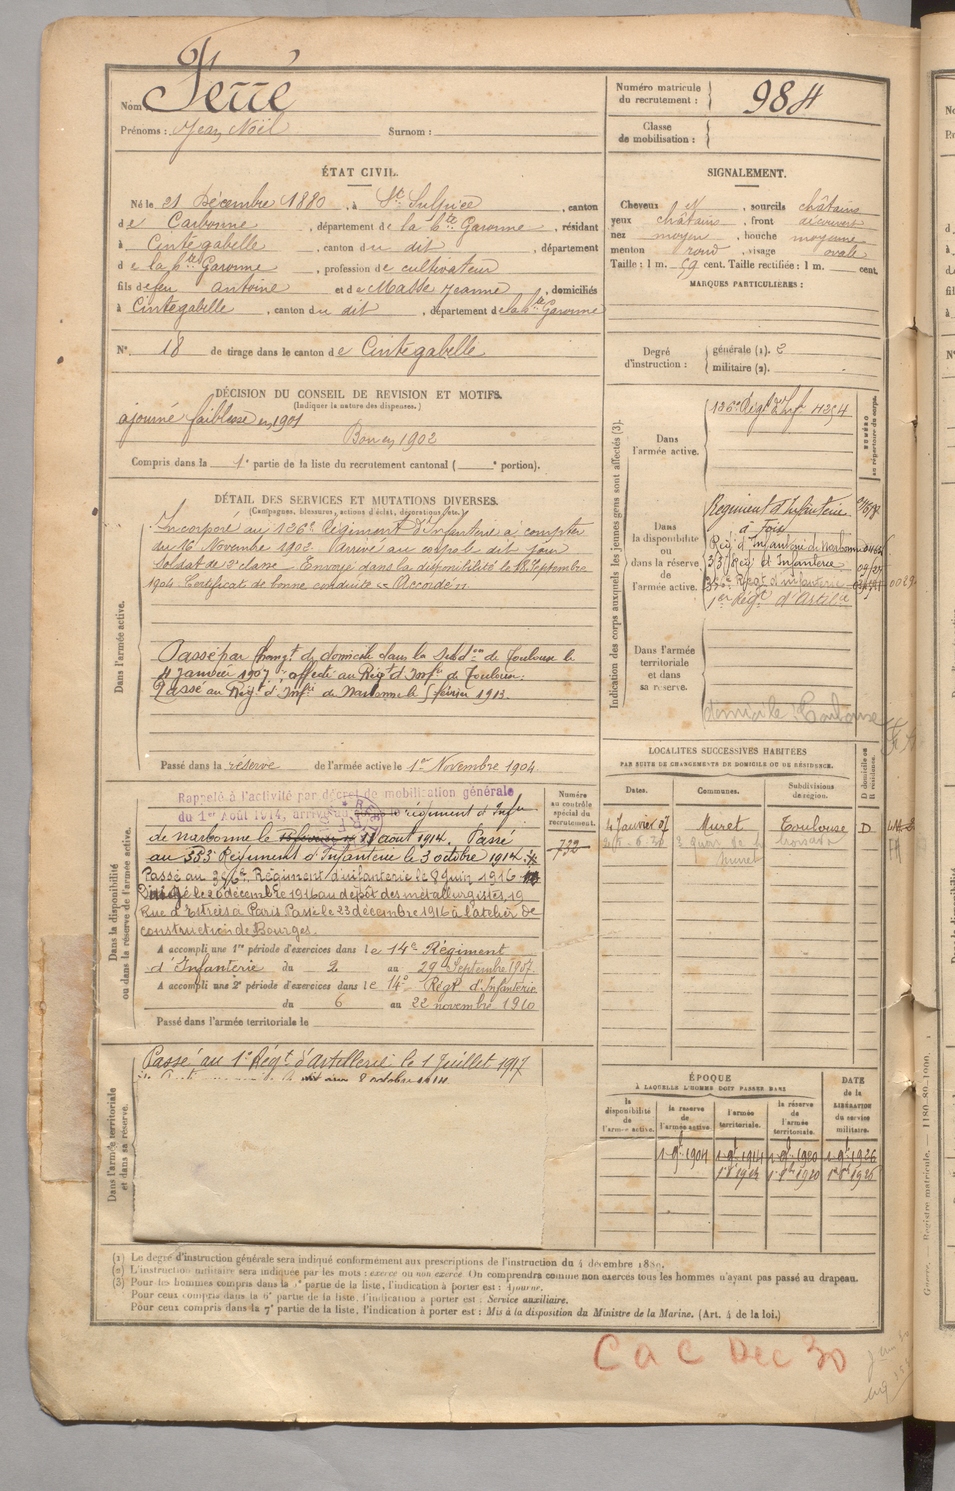 Nom Ferré
Prénoms : Jean Noël Surnom :
Numéro matricule du recrutement : 984
Classe de mobilisation :
ÉTAT CIVIL.
Né le 21 Décembre 1880, à St Sulpice, canton
de Carbonne, département de la Hte Garonne, résidant
à Cintegabelle, canton du dit, département
de la Hte Garonne, profession de cultivateur
fils de feu Antoine et de Masse Jeanne, domiciliés
à Cintegabelle, canton du dit, département de la Hte Garonne
N° 18 de tirage dans le canton de Cintegabelle
SIGNALEMENT.
Cheveux N, sourcils châtains
yeux châtains, front découvert
nez moyen, bouche moyenne
menton rond, visage ovale
Taille : 1 m. 59 cent. Taille rectifiée : 1 m. cent.
MARQUES PARTICULIÈRES :
Degré d'instruction : générale (1). 2
militaire (2).
DÉCISION DU CONSEIL DE REVISION ET MOTIFS.
(Indiquer la nature des dispenses.)
ajourné faiblesse en 1901
Bon en 1902
Compris dans la 1e partie de la liste du recrutement cantonal ( e portion).
DÉTAIL DES SERVICES ET MUTATIONS DIVERSES.
(Campagnes, blessures, actions d'éclat, décorations, etc.)
Dans l'armée active.
Incorporé au 126e Régiment d'Infanterie à compter
du 16 Novembre 1902. Arrivé au corps le dit jour
Soldat de 2e classe. Envoyé dans la disponibilité le 18 Septembre
1904. Certificat de bonne conduite "Accordé"
Passé par changt de domicile dans la Subdon de Toulouse le
4 Janvier 1907 : affecté au Régt d'Inf. de Toulouse.
Passé au Régt d'Infie de Narbonne le février 1913.
Passé dans la réserve de l'armée active le 1er Novembre 1904.
Indication des corps auxquels les jeunes gens sont affectés (3).
NUMÉRO au répertoire du corps.
Dans l'armée active.
126e Régt d'Inf 4254
Dans la disponibilité ou dans la réserve de l'armée active.
Régiment d'Infanterie
à Foix
Rég. d'Infanterie de Narbonne
Reg. d'Infanterie
Régt d'infanterie
1er Régt d'Artillie
Dans l'armée territoriale et dans sa réserve.
domicile : Toulouse
LOCALITÉS SUCCESSIVES HABITÉES
PAR SUITE DE CHANGEMENTS DE DOMICILE OU DE RÉSIDENCE.
Dates. Communes. Subdivisions de région. D domicile ou R résidence.
4 Janvier 07 Muret Toulouse D
Muret
Dans la disponibilité ou dans la réserve de l'armée active.
Numéro au contrôle spécial du recrutement.
732
Rappelé à l'activité par décret de mobilisation générale
du 1er Août 1914, arrivé au régiment d'Infie
de Narbonne le août 1914. Passé
au 353 Régiment d'Infanterie le 3 octobre 1914.
Passé au Régiment d'infanterie le 8 juin 1916
Dirigé le 20 décembre 1916 au dépôt des métallurgistes, 19
Rue d'Estrées à Paris. Passé le 23 décembre 1916 à l'atelier de
construction de Bourges.
A accompli une 1re période d'exercices dans le 14e Régiment
d'Infanterie du 2 au 29 Septembre 1907.
A accompli une 2e période d'exercices dans le 14e Régt d'Infanterie
du 6 au 22 novembre 1910
Passé dans l'armée territoriale le
Dans l'armée territoriale et dans sa réserve.
Passé au 1er Régt d'Artillerie le 1 Juillet 1917
ÉPOQUE
À LAQUELLE L'HOMME DOIT PASSER DANS
la disponibilité de l'armée active. la réserve de l'armée active. l'armée territoriale. la réserve de l'armée territoriale. DATE de la LIBÉRATION du service militaire.
1 9bre 1904 1 9bre 1914 1 9bre 1920 1 9bre 1926
(1) Le degré d'instruction générale sera indiqué conformément aux prescriptions de l'instruction du 4 décembre 1889.
(2) L'instruction militaire sera indiquée par les mots : exercé ou non exercé. On comprendra comme non exercés tous les hommes n'ayant pas passé au drapeau.
(3) Pour les hommes compris dans la partie de la liste, l'indication à porter est : Ajourné.
Pour ceux compris dans la 6e partie de la liste, l'indication à porter est : Service auxiliaire.
Pour ceux compris dans la 7e partie de la liste, l'indication à porter est : Mis à la disposition du Ministre de la Marine. (Art. 4 de la loi.)
CaC Dec 30
Guerre. — Registre matricule. — 1180-89-1900.